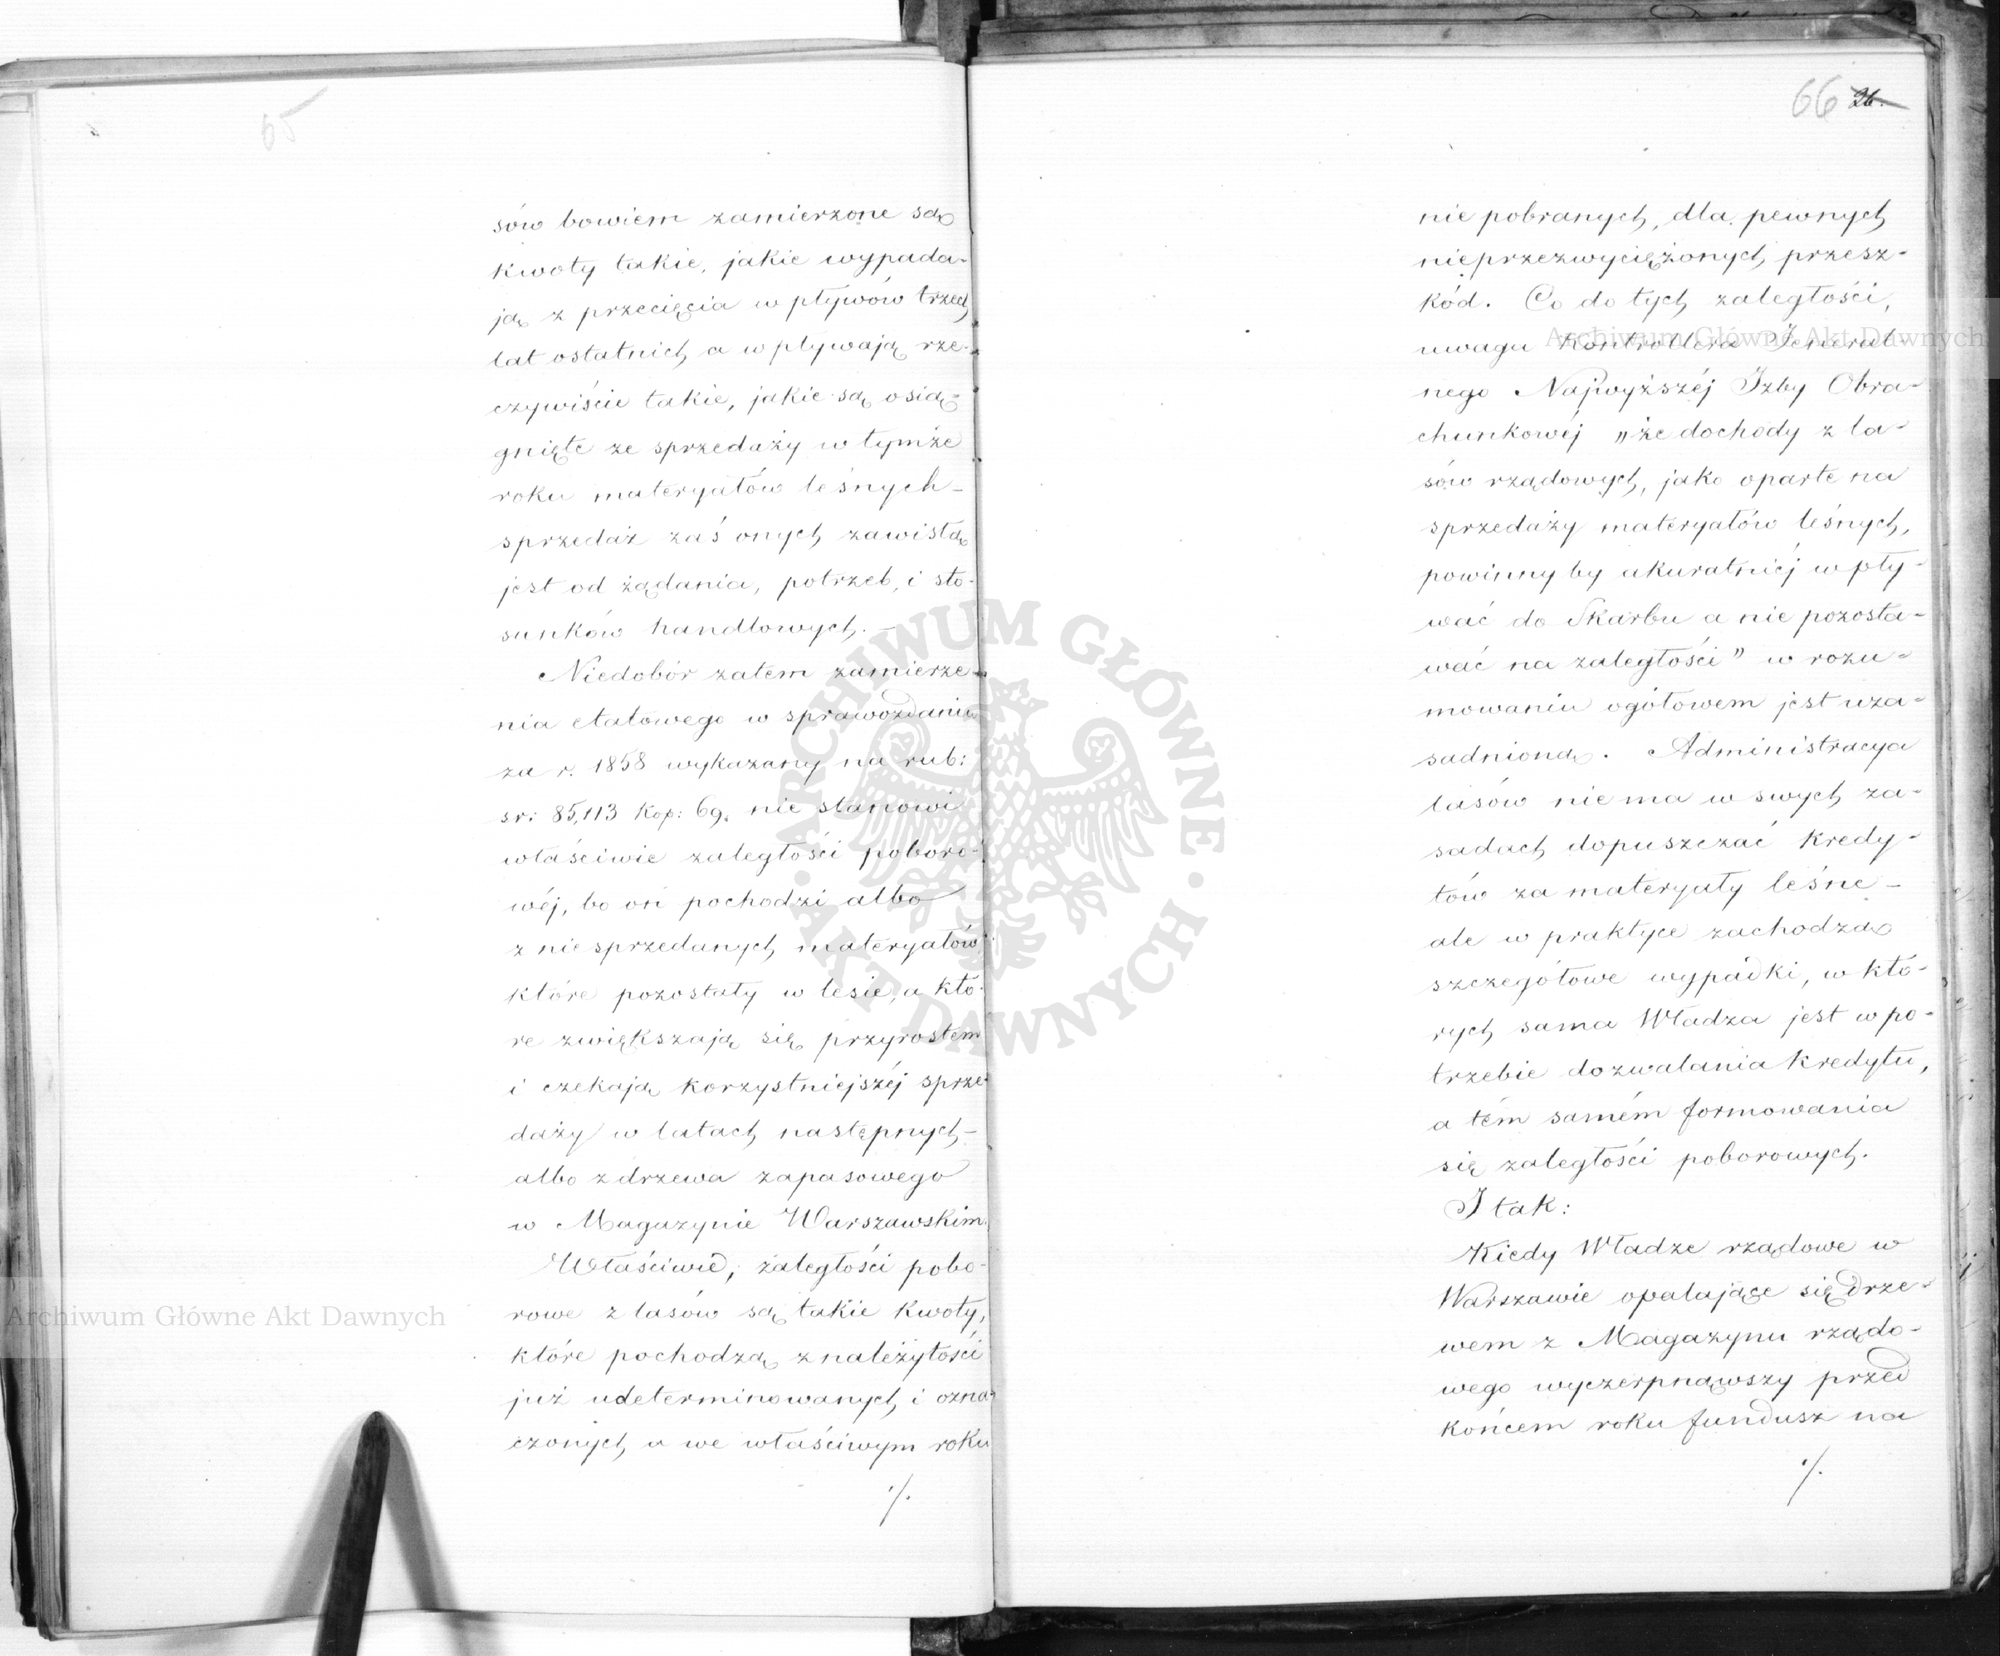 65
sów bowiem zamierzone są
kwoty takie, jakie wypada-
ją z przecięcia wpływów trzech
lat ostatnich, a wpływają rze-
czywiście takie, jakie są osią-
gnięte ze sprzedaży w tymże
roku materyałów leśnych –
sprzedaż zaś onych zawisłą
jest od żądania, potrzeb, i sto-
sunków handlowych. –
Niedobór zatem zamierze-
nia etatowego w sprawozdaniu
za r. 1858 wykazany na rub:
sr: 85,113 kop: 69, nie stanowi
właściwie zaległości poboro-
wéj, bo on pochodzi albo
z niesprzedanych materyałów,
które pozostały w lesie, a któ-
re zwiększają się przyrostem
i czekają korzystniejszéj sprze-
daży w latach następnych –
albo z drzewa zapasowego
w Magazynie Warszawskim.
Właściwe, zaległości pobo-
rowe z lasów są takie kwoty,
które pochodzą z należytości
już udeterminowanych i ozna-
czonych, a we właściwym roku
./.
66 26.
nie pobranych, dla pewnych
nieprzezwyciężonych przesz-
kód. Co do tych zaległości,
uwaga Kontrollera Jeneral-
nego Najwyższéj Izby Obra-
chunkowéj „że dochody z la-
sów rządowych, jako oparte na
sprzedaży materyałów leśnych,
powinny by akuratniéj wpły-
wać do Skarbu a nie pozosta-
wać na zaległości” w rozu-
mowaniu ogółowem jest uza-
sadnioną. Administracya
lasów nie ma w swych za-
sadach dopuszczać kredy-
tów za materyały leśne –
ale w praktyce zachodzą
szczegółowe wypadki, w któ-
rych sama Władza jest w po-
trzebie dozwalania kredytu,
a tém samém formowania
się zaległości poborowych.
I tak:
Kiedy Władze rządowe w
Warszawie opalające się drze-
wem z Magazynu rządo-
wego wyczerpnąwszy przed
końcem roku fundusz na
./.
Archiwum Główne Akt Dawnych
Archiwum Główne Akt Dawnych
ARCHIWUM GŁÓWNE
AKT DAWNYCH